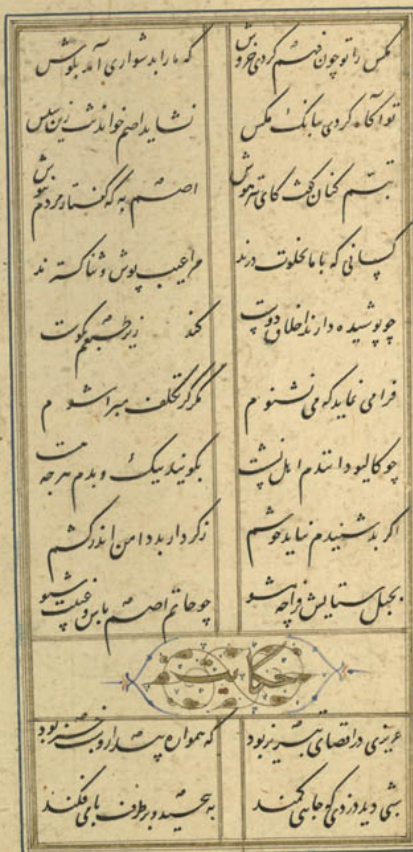 مکس را تو چون فهم کردی خروش که ما را بدشواری آمد بکوش
تو آکاه کردی ببانک مکس نشاید اصم خواندنت زین سپس
تبسم کنان کفت کای تیزهوش اصم به که کفتار مردم نیوش
کسانی که با ما بخلوت درند مرا عیب پوش و ثنا کسترند
چو پوشیده دارند اخلاق کند زیر طبعم
فرا می نماید که می نشنوم مکر کز تکلف مبرا شوم
چو کالیو دانندم اهل نشست بکویند نیک و بدم هر چه هست
اکر بد شنیدم نیاید خوشم ز کردار بد دامن اندر کشم
بحبل ستایش فراچه مشو چو حاتم اصم باش و غیبت شنو
حکایت
عزیزی در اقصای تبریز بود که همواره بیدار و شب خیز بود
شبی دید دزدی که جایی کمند به پیچید و بر طرف بامی فکند